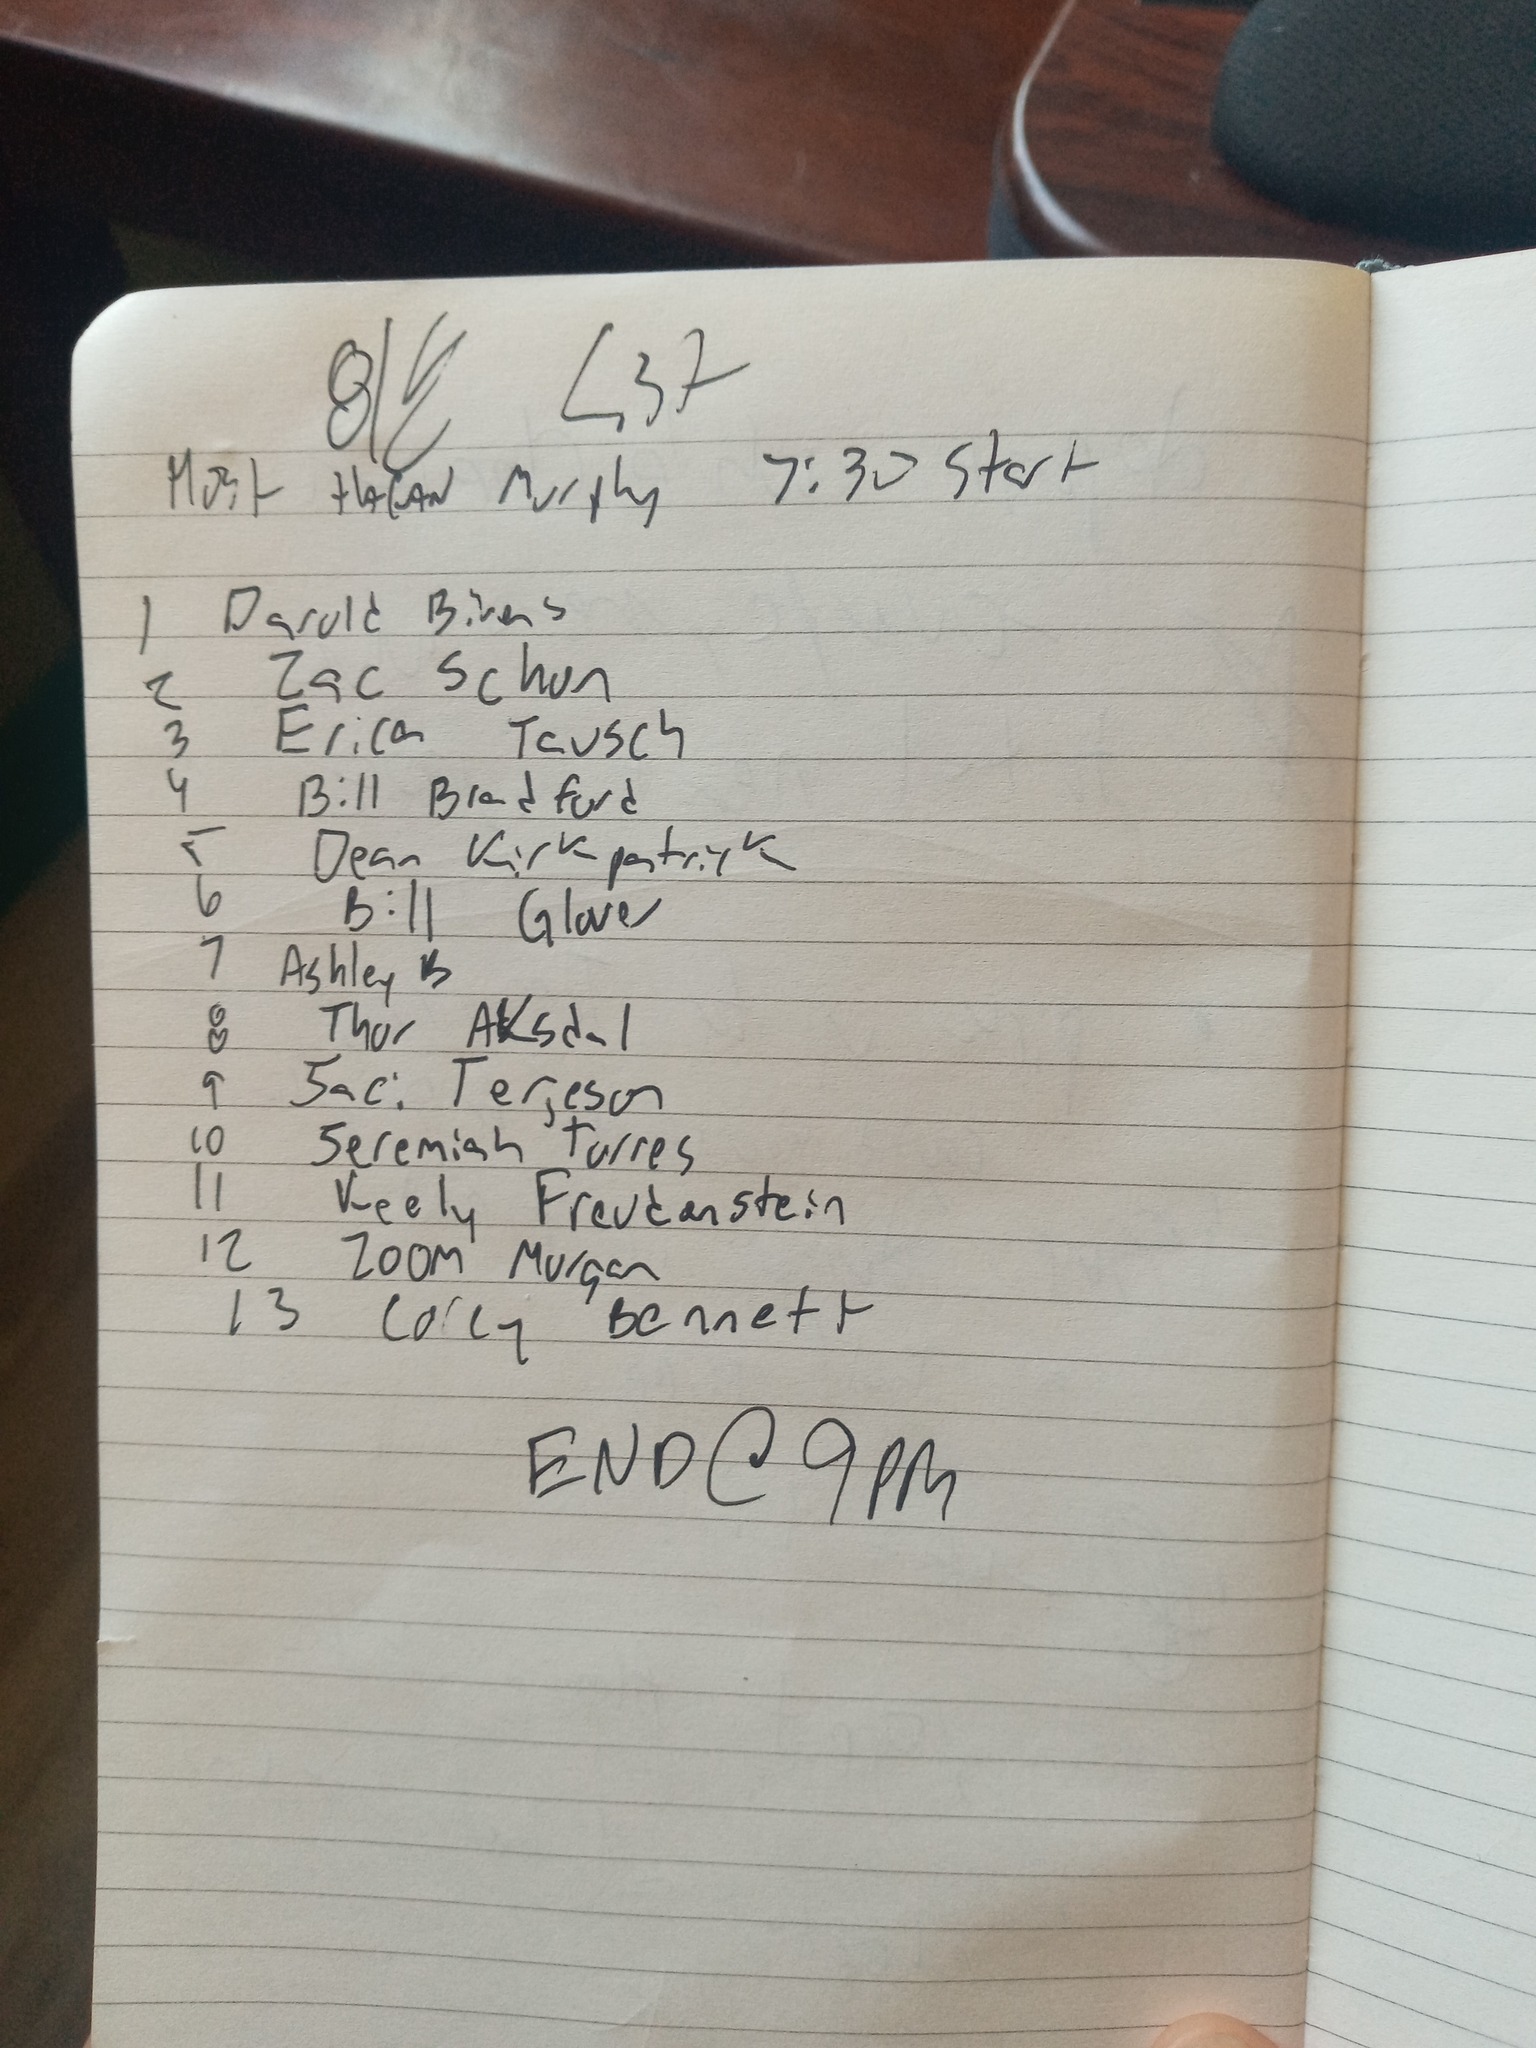 L37
Host Hagan Murphy 7:30 Start
1 Darold Bivens
2 Zac Schon
3 Erica Tausch
4 Bill Bradford
5 Dean Kirkpatrick
6 Bill Glover
7 Ashley B
8 Thor Aksdal
9 Jaci Terjeson
10 Jeremiah Torres
11 Keely Freudanstein
12 Zoom Morgan
13 Corey Bennett
END @ 9 PM